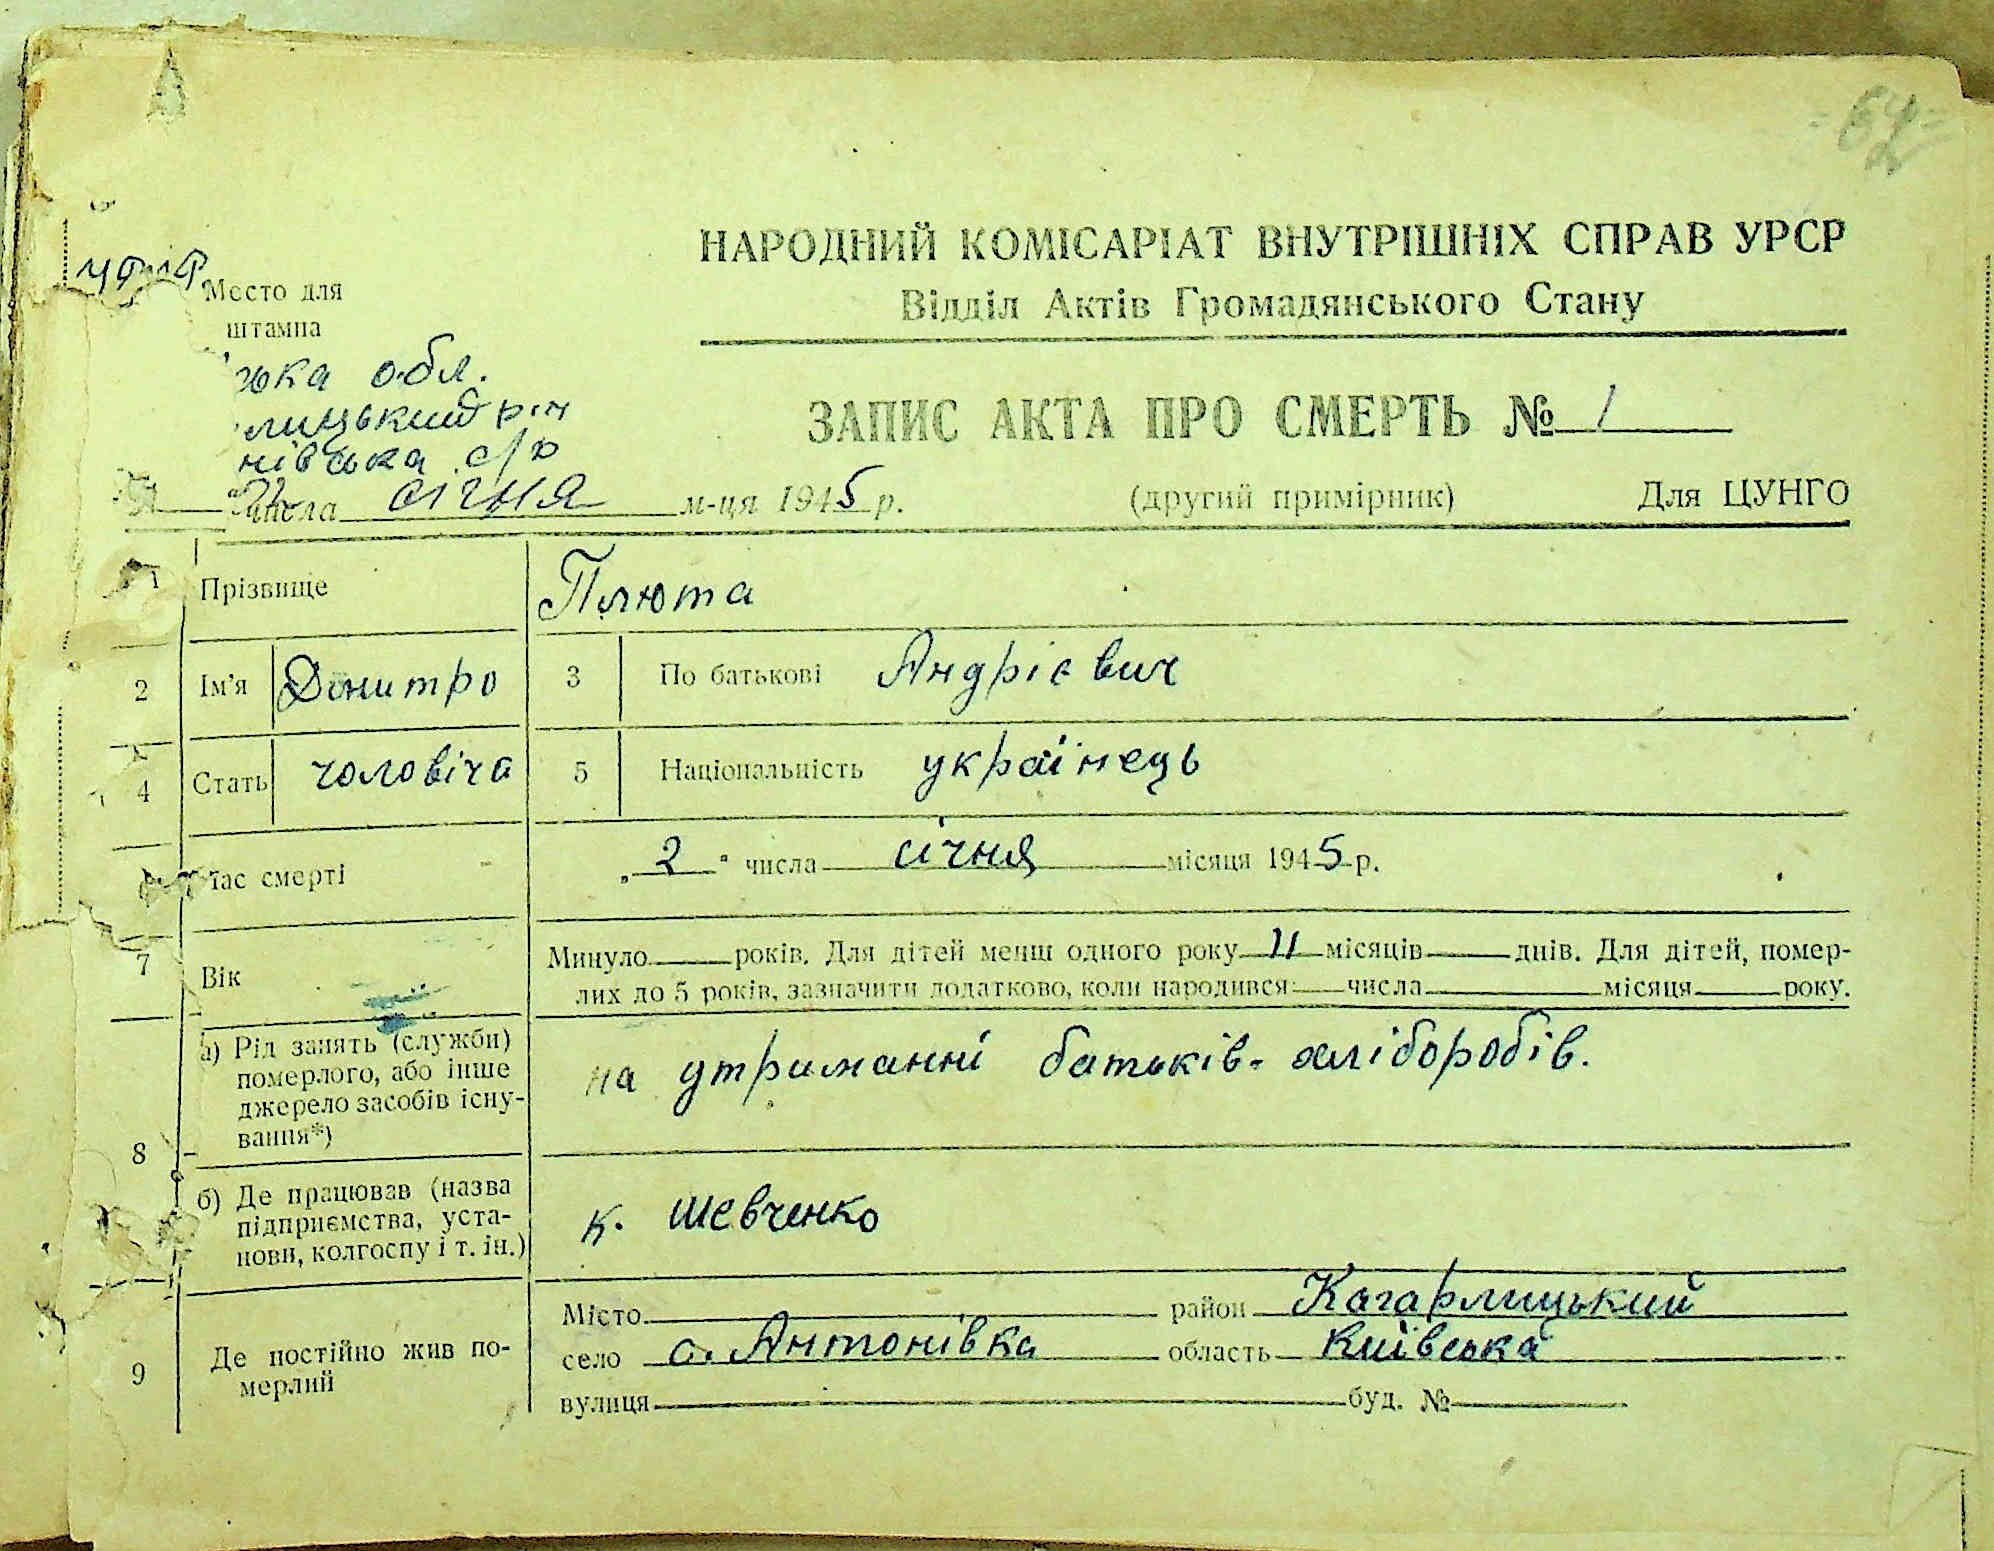 НАРОДНИЙ КОМІСАРІАТ ВНУТРІШНІХ СПРАВ УРСР
Відділ Актів Громадянського Стану
Место для
штампа
ька обл.
лицький р-н
нівська с/р
ЗАПИС АКТА ПРО СМЕРТЬ № 1
числа січня м-ця 1945 р.
(другий примірник) Для ЦУНГО
1 Прізвище Плюта
2 Ім'я Дмитро 3 По батькові Андрієвич
4 Стать чоловіча 5 Національність українець
6 Час смерті „2" числа січня місяця 1945 р.
7 Вік Минуло років. Для дітей менш одного року 11 місяців днів. Для дітей, помер-
лих до 5 років, зазначити додатково, коли народився: числа місяця року.
8 а) Рід занять (служби)
померлого, або інше
джерело засобів існу-
вання*)
на утриманні батьків-хліборобів.
б) Де працював (назва
підприємства, уста-
нови, колгоспу і т. ін.)
к. Шевченко
9 Де постійно жив по-
мерлий
Місто район Кагарлицький
село с. Антонівка область Київська
вулиця буд. №